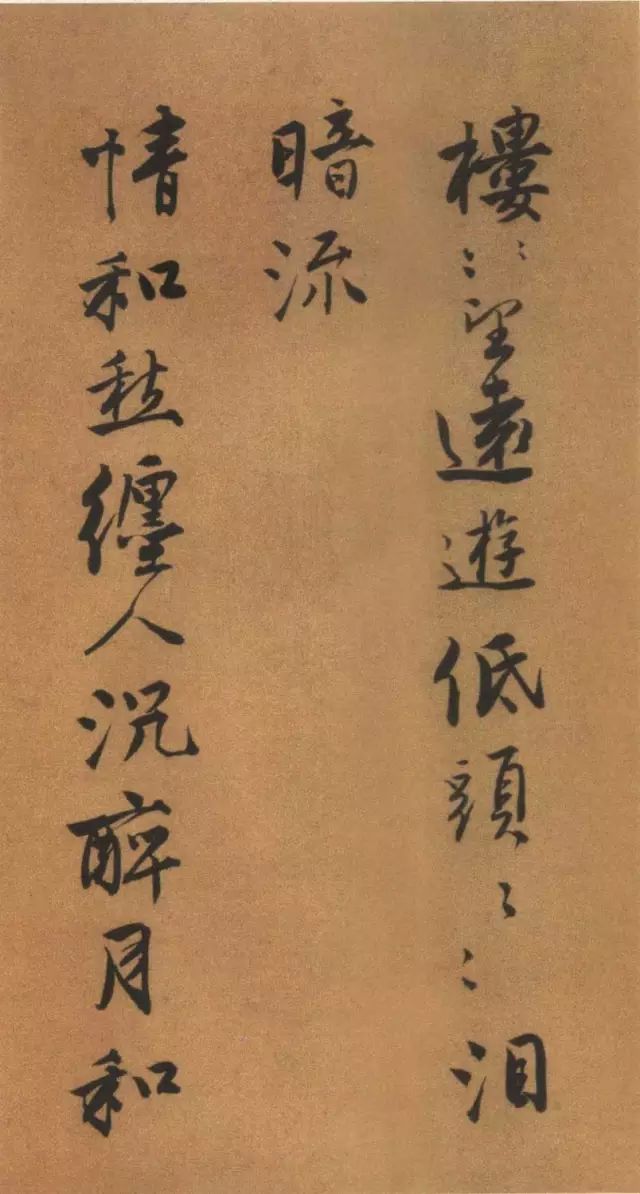 樓〻〻望遠遊低頭〻〻泪
暗流
情和愁纏人沉醉月和